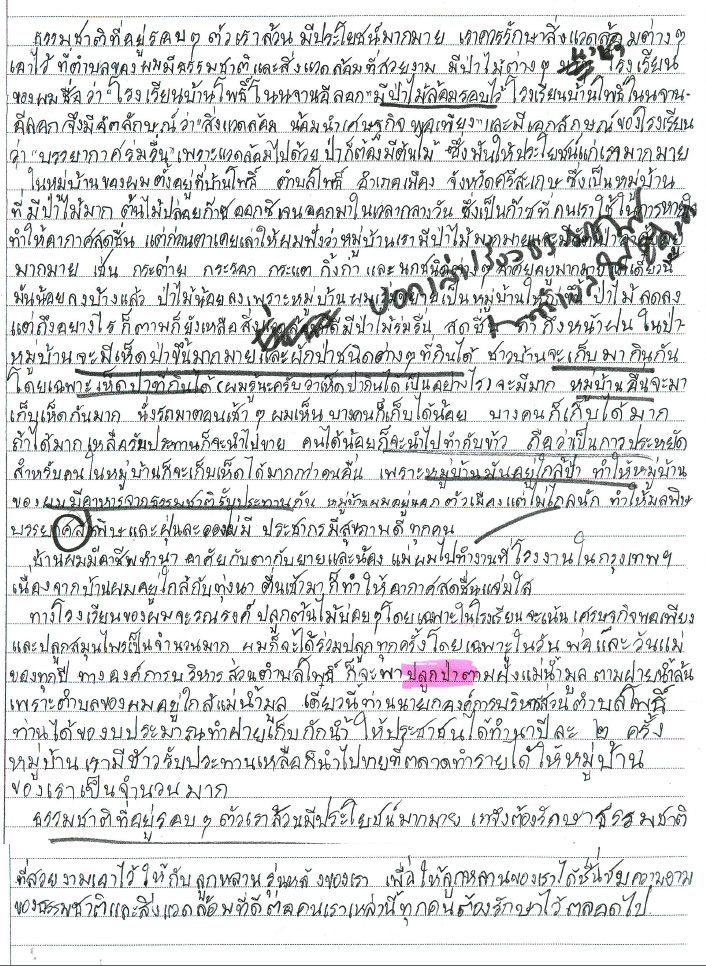 ธรรมชาติที่อยู่รอบๆ ตัวเราล้วน มีประโยชน์มากมาย เราควรรักษาสิ่งแวดล้อมต่างๆ
เอาไว้ ที่ตำบลของผมมีธรรมชาติและสิ่งแวดล้อมที่สวยงาม มีป่าไม้ต่างๆ โรงเรียน
ของผมชื่อว่า "โรงเรียนบ้านโพธิ์โนนจานอีลอก" มีป่าไม้ล้อมรอบไว้ โรงเรียนบ้านโพธิ์โนนจาน-
อีลอก จึงมีอัตลักษณ์ว่า "สิ่งแวดล้อม น้อมนำเศรษฐกิจ พอเพียง" และมีเอกลักษณ์ของโรงเรียน
ว่า "บรรยากาศร่มรื่น" เพราะแวดล้อมไปด้วย ป่าก็ต้องมีต้นไม้ ซึ่งมันให้ประโยชน์แก่เรามากมาย
ในหมู่บ้านของผมตั้งอยู่ที่บ้านโพธิ์ ตำบลโพธิ์ อำเภอเมือง จังหวัดศรีสะเกษ ซึ่งเป็นหมู่บ้าน
ที่มีป่าไม้มาก ต้นไม้ปล่อยก๊าซออกซิเจนออกมาในเวลากลางวัน ซึ่งเป็นก๊าซที่คนเราใช้ในการหายใจ
ทำให้อากาศสดชื่น แต่ก่อนตาเคยเล่าให้ผมฟังว่าหมู่บ้านเรามีป่าไม้มากมายและ
มากมาย เช่น กระต่าย กระรอก กระแต กิ้งก่า และนกชนิดต่างๆ อาศัยอยู่มากมาย เดี๋ยวนี้
มันน้อยลงบ้างแล้ว ป่าไม้น้อยลงเพราะหมู่บ้าน ผมเริ่มขยายเป็นหมู่บ้านใหญ่ขึ้น ป่าไม้ลดลง
แต่ถึงอย่างไรก็ตามก็ยังเหลือสิ่งแวดล้อมที่ดีมีป่าไม้ร่มรื่น สดชื่น ถ้าถึงหน้าฝน ในป่า
หมู่บ้านจะมีเห็ดป่าขึ้นมากมายและผักป่าชนิดต่างๆ ที่กินได้ ชาวบ้านจะเก็บมากินกัน
โดยเฉพาะเห็ดป่าที่กินได้ (ผมรู้นะครับว่าเห็ดป่ากินได้เป็นอย่างไร) จะมีมาก หมู่บ้านอื่นจะมา
เก็บเห็ดกันมาก นั่งรถมาตอนเช้าๆ ผมเห็น บางคนก็เก็บได้น้อย บางคนก็เก็บได้มาก
ถ้าได้มากเหลือรับประทานก็จะนำไปขาย คนได้น้อยก็จะนำไปทำกับข้าว ถือว่าเป็นการประหยัด
สำหรับคนในหมู่บ้านก็จะเก็บเห็ดได้มากกว่าคนอื่น เพราะหมู่บ้านมันอยู่ใกล้ป่า ทำให้หมู่บ้าน
ของผมมีอาหารจากธรรมชาติรับประทานกัน หมู่บ้านผมอยู่นอกตัวเมืองแต่ไม่ไกลนัก ทำให้มลพิษ
พิษและฝุ่นละอองไม่มี ประชากรมีสุขภาพดีทุกคน
บ้านผมมีอาชีพทำนา อาศัยกับตากับยายและน้อง แม่ผมไปทำงานที่โรงงานในกรุงเทพฯ
เนื่องจากบ้านผมอยู่ใกล้กับทุ่งนา ตื่นเช้ามาก็ทำให้อากาศสดชื่นแจ่มใส
ทางโรงเรียนของผมจะรณรงค์ ปลูกต้นไม้บ่อยๆ โดยเฉพาะในโรงเรียนจะเน้น เศรษฐกิจพอเพียง
และปลูกสมุนไพรเป็นจำนวนมาก ผมก็จะได้ร่วมปลูกทุกครั้งโดยเฉพาะในวัน พ่อและวันแม่
ของทุกปี ทางองค์การบริหารส่วนตำบลโพธิ์ ก็จะพาปลูกป่าตามฝั่งแม่น้ำมูล ตามฝายน้ำล้น
เพราะตำบลของผมอยู่ใกล้แม่น้ำมูล เดี๋ยวนี้ท่านนายกองค์การบริหารส่วนตำบลโพธิ์
ท่านได้ของบประมาณทำฝายเก็บกักน้ำ ให้ประชาชนได้ทำนาปีละ ๒ ครั้ง
หมู่บ้านเรามีข้าวรับประทานเหลือก็นำไปขายที่ตลาดทำรายได้ให้หมู่บ้าน
ของเราเป็นจำนวนมาก
ธรรมชาติที่อยู่รอบๆ ตัวเราล้วนมีประโยชน์มากมาย เราจึงต้องรักษาธรรมชาติ
ที่สวยงามเอาไว้ ให้กับลูกหลานรุ่นหลังของเรา เพื่อให้ลูกหลานของเราได้ชื่นชมความงาม
ของธรรมชาติและสิ่งแวดล้อมที่ดีต่อคนเราเหล่านี้ทุกคนต้องรักษาไว้ตลอดไป